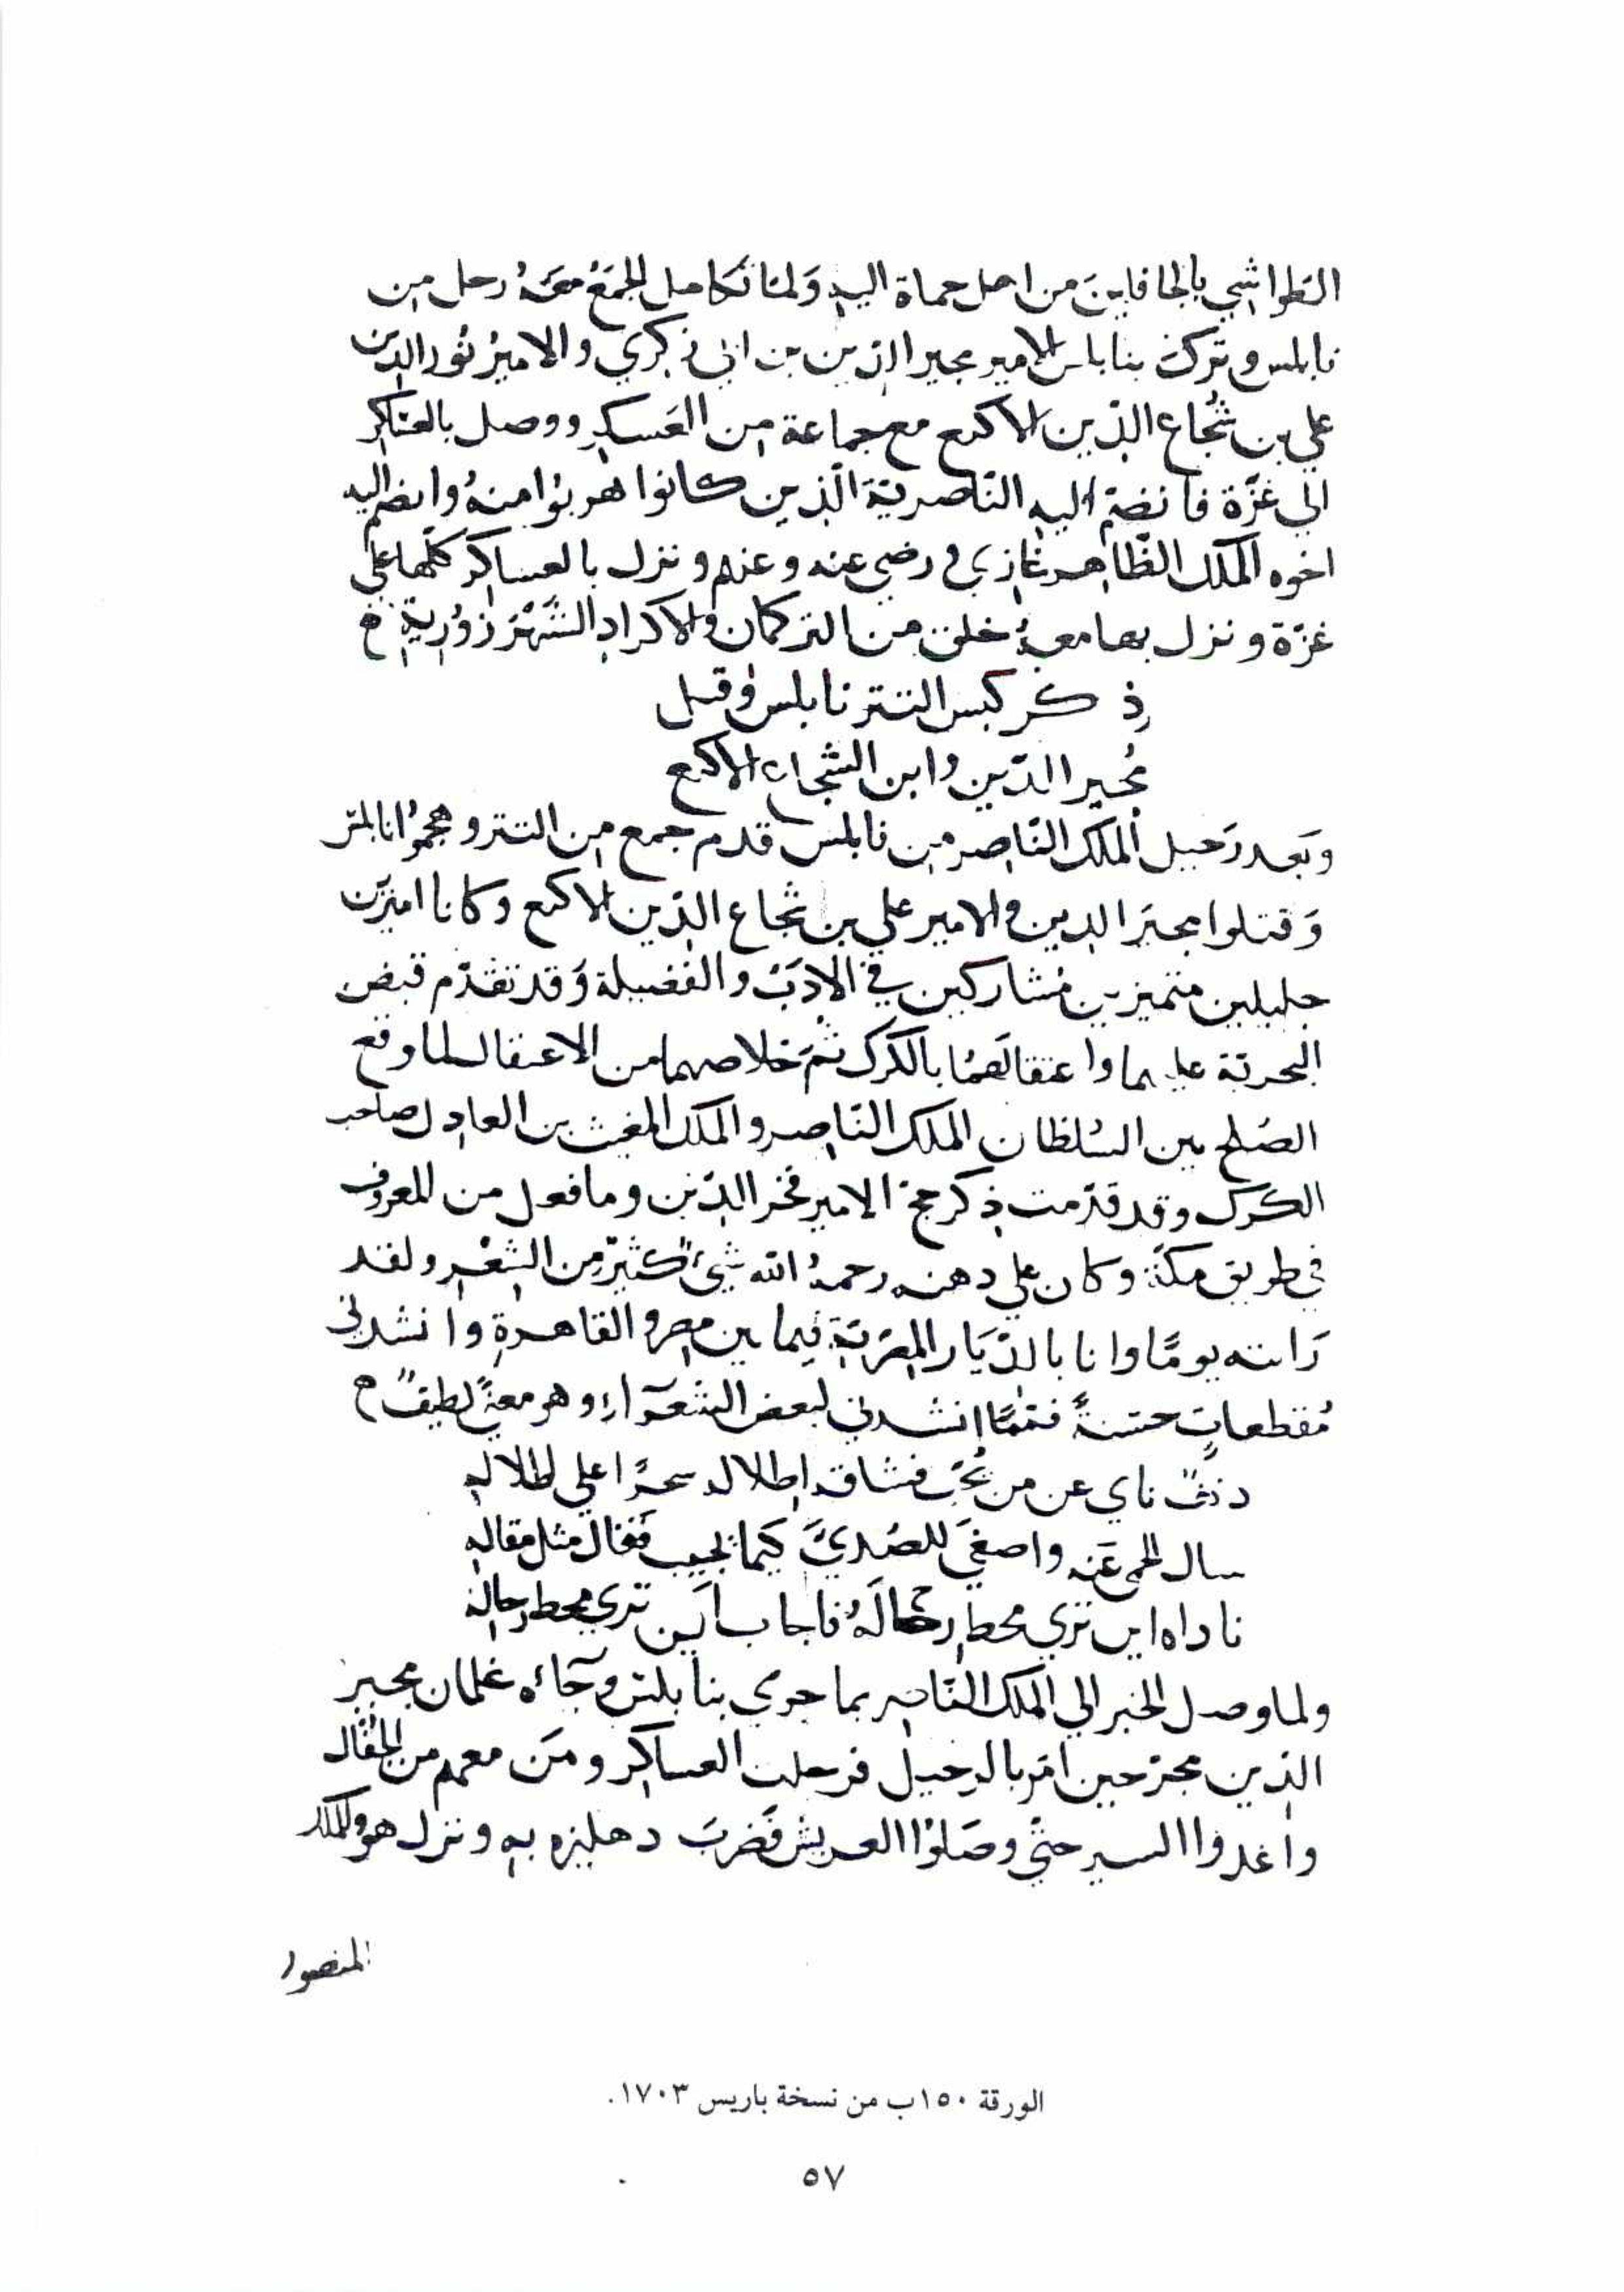 الطواشي بالجافلين من اهل حماة اليه وَلمّا تكامل الجمَعُ معَهُ رحل من
نابلس وترك بنابلس الامير مجير الدين بن ابي زكري والاميرُ نُور الدّين
علي بن شُجاع الدّين الاكتع مع جماعة من العَسكرِ ووصل بالعسَاكر
الي غزّة فانضمّ اليه النّاصريّة الّذين كانوا هربُوا منهُ وانضم اليه
اخوه الملك الظّاهر غازي ورضي عنه وعنهم ونزل بالعساكر كلّها علي
غزّة ونزل بها معهُ خلق من التركمان والاكرادِ الشّهْرَزوُرية
ذكر كبس التتر نابلس وقتل
مُجير الدّين وابن الشّجاع الاكتع
وبَعد رَحيل الملك النّاصر من نابلس قدم جمع من التتر وهجمُوا نابلس
وَقتلوا مجيَر الدين والامير علي بن شجاع الدّين الاكتع وكانا اميرَين
جليلين متميزين مُشاركين في الادَبِ والفضيلة وَقد تقدّم قبض
البحريّة عليهما واعتقالهمُا بالكرك ثمّ خلاصهما من الاعتقال لما وقع
الصُلح بين السُلطان الملك النّاصر والملك المغيث بن العادل صاحب
الكرك وقد قدّمت ذكر حجة الامير فخر الدّين وما فعل من المعروف
في طريق مكّة وكان علي دهنه رحمهُ الله شيءٌ كثيرٌ من الشِعْرِ ولقد
رَايته يومًا وانا بالدّيَار المِصْريّة فيما بين مصر والقاهرةِ وانشدني
مُقطعاتٍ حسَنةً فممّا انشدني لبعض الشعَرآءِ وهو معنًي لطيفٌ
دنفٌ ناي عن من يُحبّ فشاقه اطلاله سحرًا علي اطلالهِ
سال الحمي عَنه واصغيَ للصّديَ كَيما يجيب فَقال مثل مقالهِ
ناداه اين تري محط رحَالهُ فاجاب اَين تري محط رحاله
ولما وصل الخبر الي الملك النّاصر بما جري بنابلس وَجآءه غلمان مجير
الدّين مجرّحين امَر بالرحيل فرحلت العساكر ومَن معهم من الجفّال
واغدوا السير حتّي وصَلوُا العريش فَضربَ دهليزه بهِ ونزل هو والملك
المنصور
الورقة ١٥٠ب من نسخة باريس ١٧٠٣.
٥٧